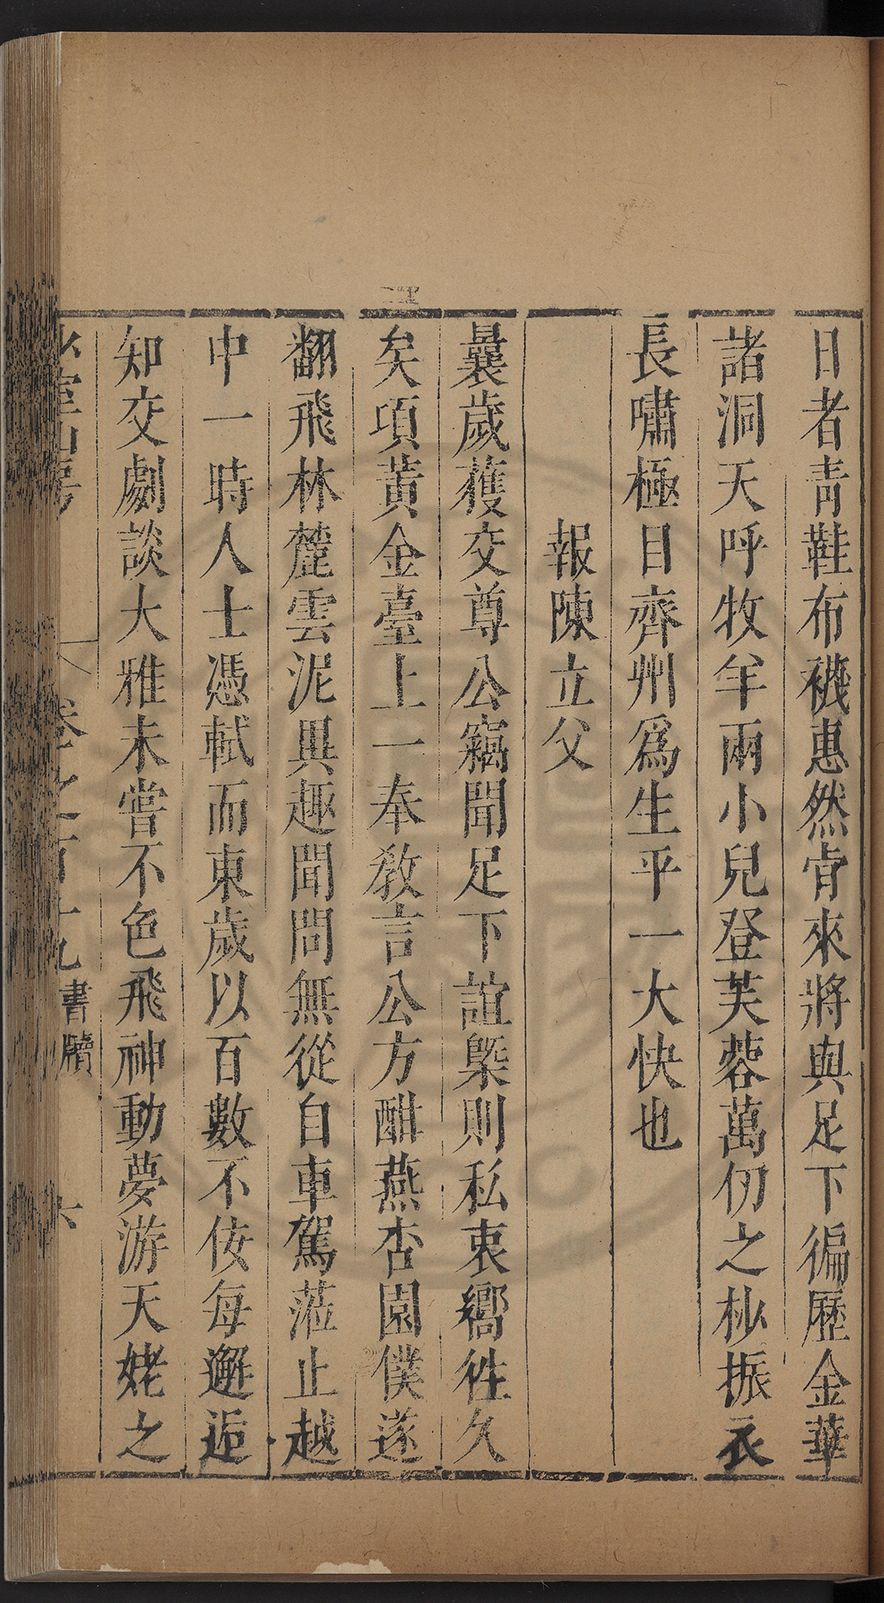 日者靑鞋布襪惠然肯來將與足下徧歷金華
諸洞天呼牧羊兩小兒登芙蓉萬仞之杪振衣
長嘯極目齊州爲生平一大快也
報陳立父
曩歲獲交尊公竊聞足下誼槩則私衷嚮徃久
矣項黃金臺上一奉敎言公方酣燕杏園僕遂
翻飛林麓雲泥異趣聞問無從自車駕蒞止越
中一時人士憑軾而東歲以百數不佞每邂逅
知交劇談大雅未嘗不色飛神動夢游天姥之
卷之百十九 書牘 六